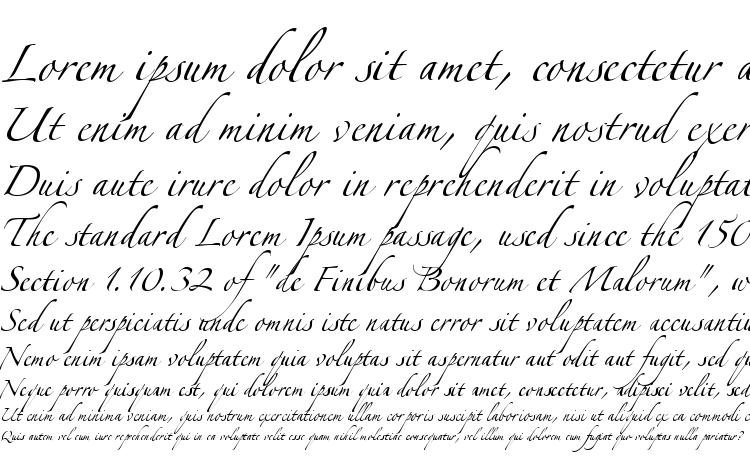 Lorem ipsum dolor sit amet, consectetur a
Ut enim ad minim veniam, quis nostrud exer
Duis aute irure dolor in reprehenderit in voluptat
The standard Lorem Ipsum passage, used since the 150
Section 1.10.32 of "de Finibus Bonorum et Malorum", w
Sed ut perspiciatis unde omnis iste natus error sit voluptatem accusantiu
Nemo enim ipsam voluptatem quia voluptas sit aspernatur aut odit aut fugit, sed qu
Neque porro quisquam est, qui dolorem ipsum quia dolor sit amet, consectetur, adipisci velit, sed
Ut enim ad minima veniam, quis nostrum exercitationem ullam corporis suscipit laboriosam, nisi ut aliquid ex ea commodi c
Quis autem vel eum iure reprehenderit qui in ea voluptate velit esse quam nihil molestiae consequatur, vel illum qui dolorem eum fugiat quo voluptas nulla pariatur?